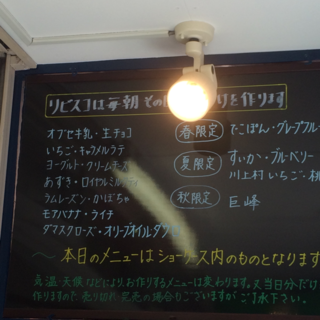 リビスコは毎朝 その りを作ります
オブセ牛乳・生チョコ
いちご・キャラメルラテ
ヨーグルト・クリームチーズ
あずき・ロイヤルミルク
ラムレーズン・かぼちゃ
モアバナナ・ライチ
ダマスクローズ・オリーブオイル
春限定 でこぽん・グレープフルー
夏限定 すいか・ブルーベリー
川上村いちご・桃
秋限定 巨峰
〜本日のメニューはショーケース内のものとなります
気温、天候などにより、お作りするメニューは変わります。又当日分だけ
作りますので、売り切れ・完売の場合もございますが ご了承下さい。